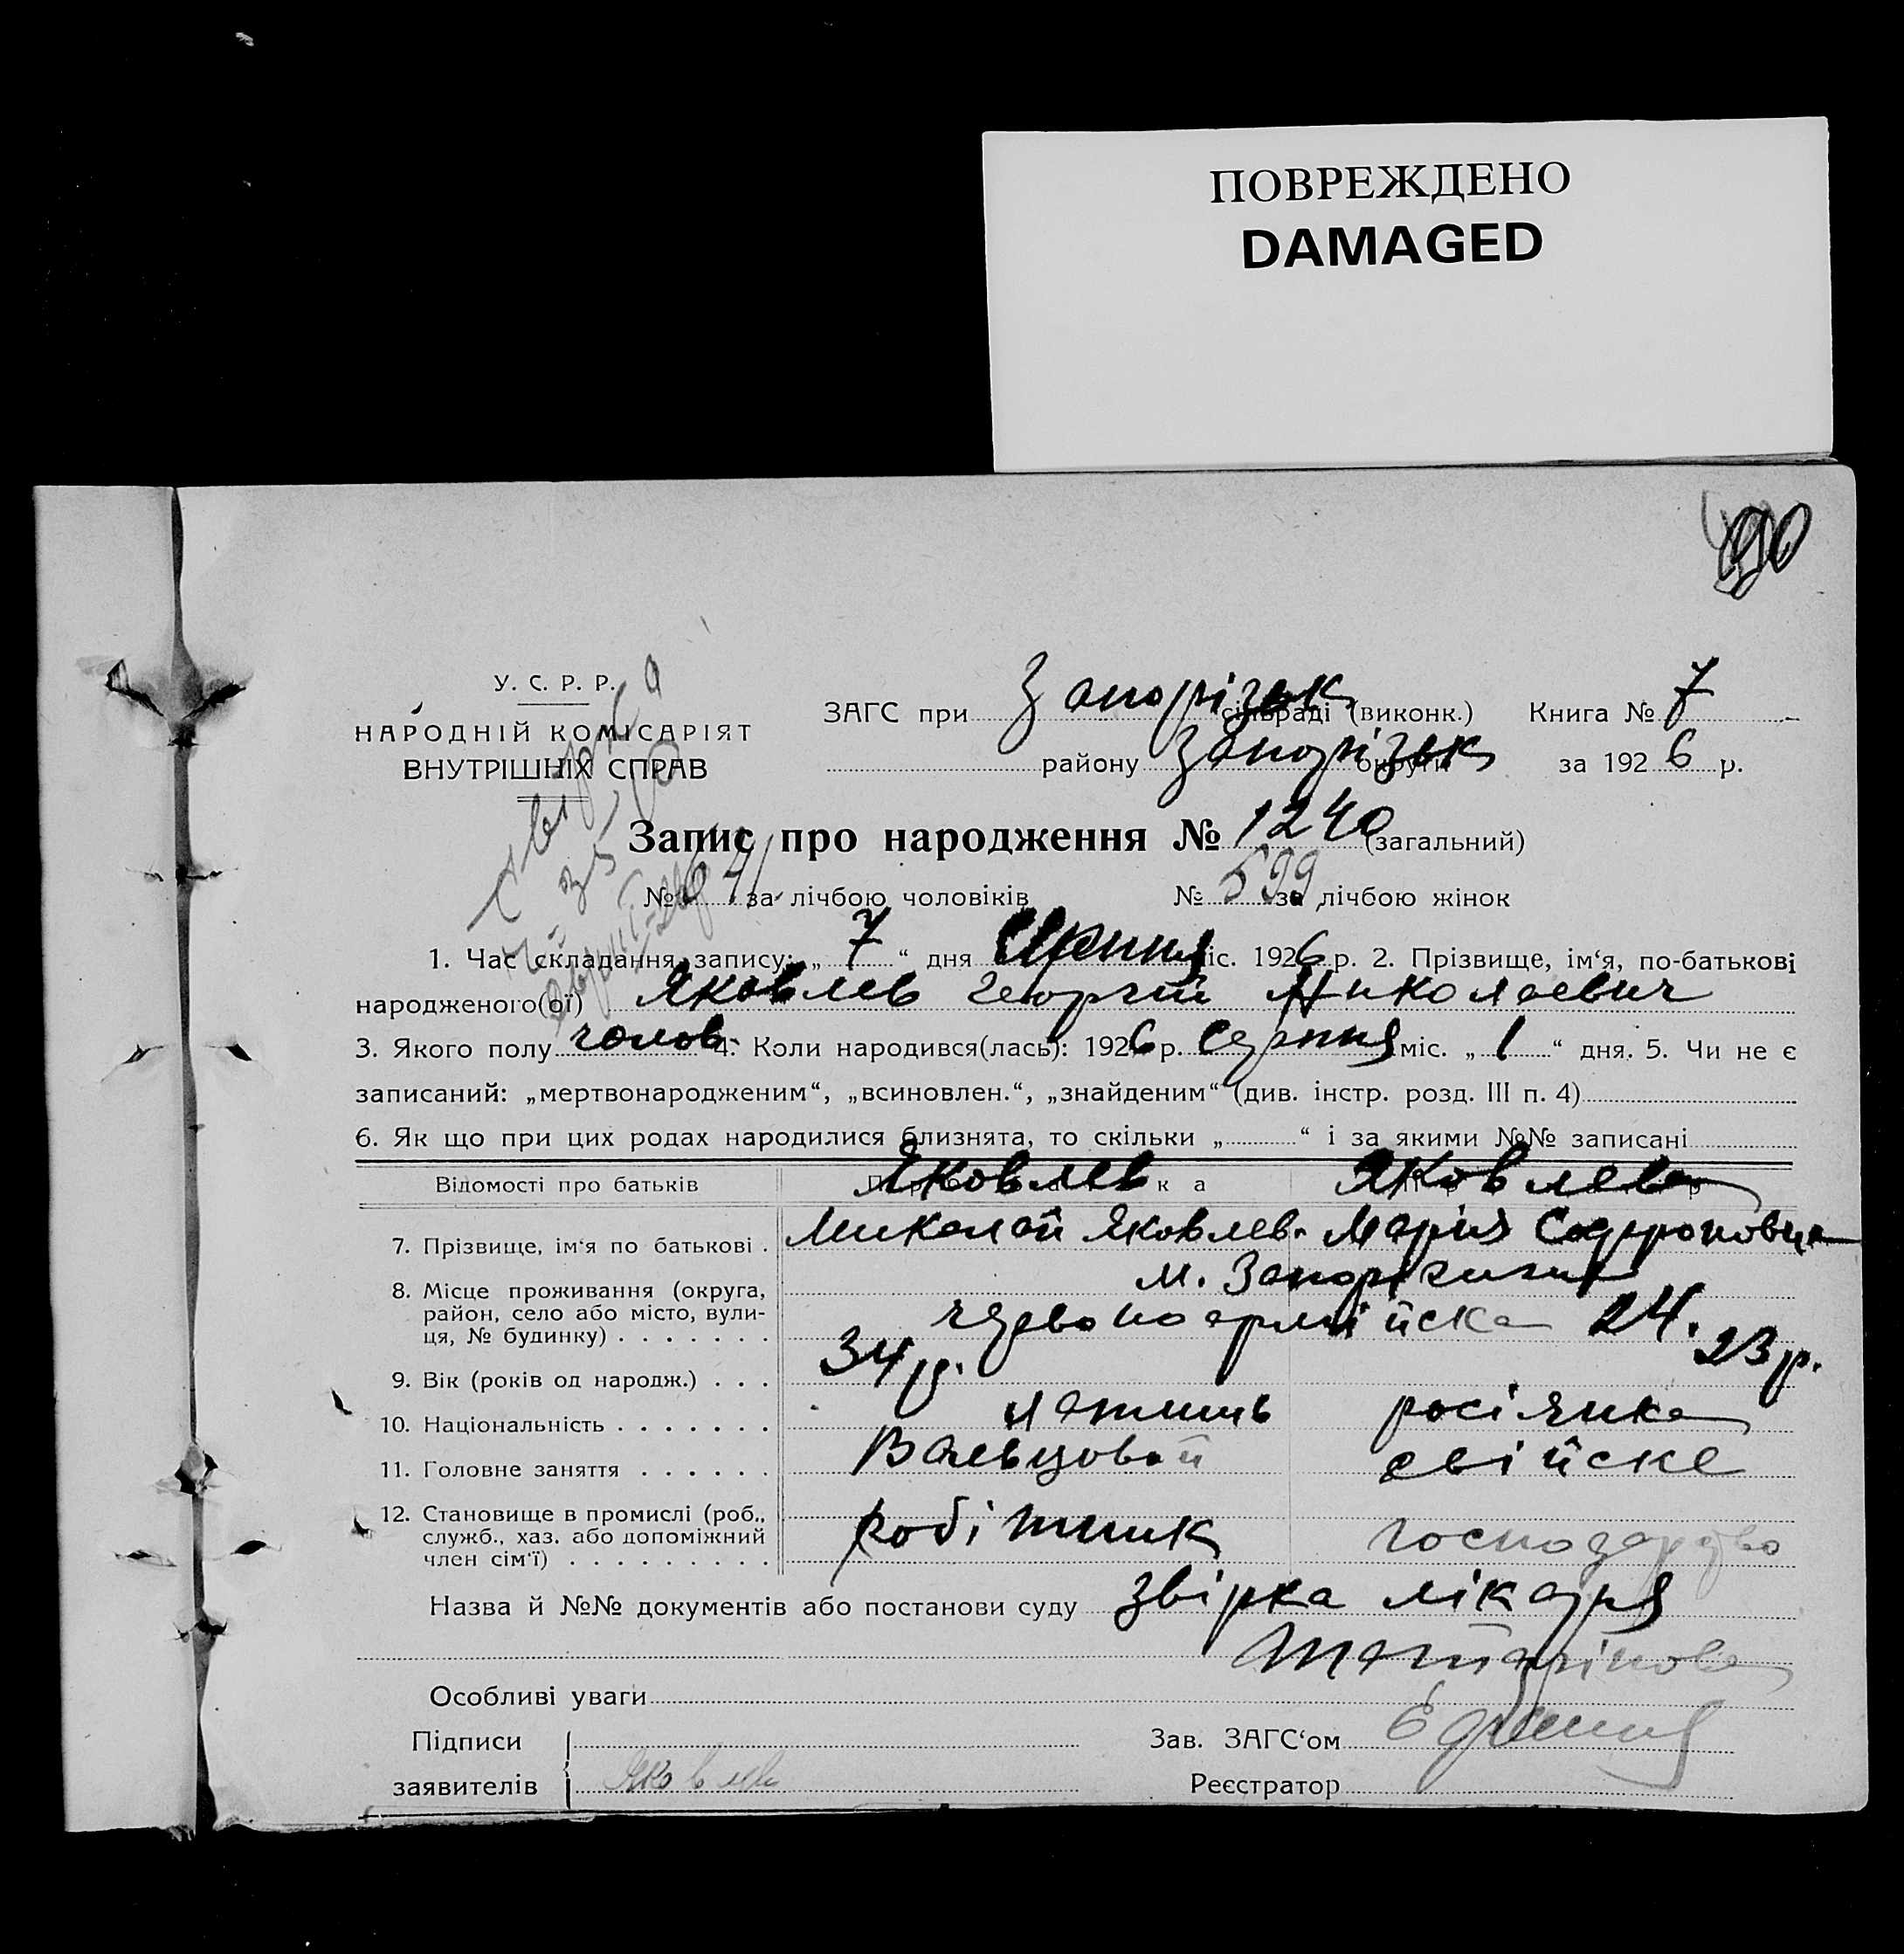 ПОВРЕЖДЕНО
DAMAGED
У. С. Р. Р.
НАРОДНІЙ КОМІСАРІЯТ
ВНУТРІШНІХ СПРАВ
ЗАГС при Запорізьк сільраді (виконк.) Книга № 7
району Запорізьк округи за 1926 р.
Запис про народження № 1240 (загальний)
№ 641 за лічбою чоловіків № 599 за лічбою жінок
1. Час складання запису: „ 7 “ дня Серпня міс. 1926 р. 2. Прізвище, ім‘я, по-батькові
народженого(ої) Яковлев Георгій Николаевич
3. Якого полу чолов. 4. Коли народився(лась): 1926 р. Серпня міс. „ 1 “ дня. 5. Чи не є
записаний: „мертвонародженим“, „всиновлен.“, „знайденим“ (див. інстр. розд. III п. 4)
6. Як що при цих родах народилися близнята, то скільки „ “ і за якими №№ записані
Відомості про батьків Яковлев Яковлева
7. Прізвище, ім‘я по батькові . Миколай Яковлев. Мария Софроновна
8. Місце проживання (округа, район, село або місто, вулиця, № будинку) . . . . . . . м. Запоріжжя
червоноармійска 24.
9. Вік (років од народж.) . . . 34 р. 23 р.
10. Національність . . . . . . . латиш росіянка
11. Головне заняття . . . . . . Вальцовой свійске
12. Становище в промислі (роб., служб., хаз. або допоміжний член сім‘ї) . . . . . . . . . робітник господарство
Назва й №№ документів або постанови суду звірка лікаря
Особливі уваги
Підписи
Зав. ЗАГС‘ом
заявителів Яковлев
Реєстратор